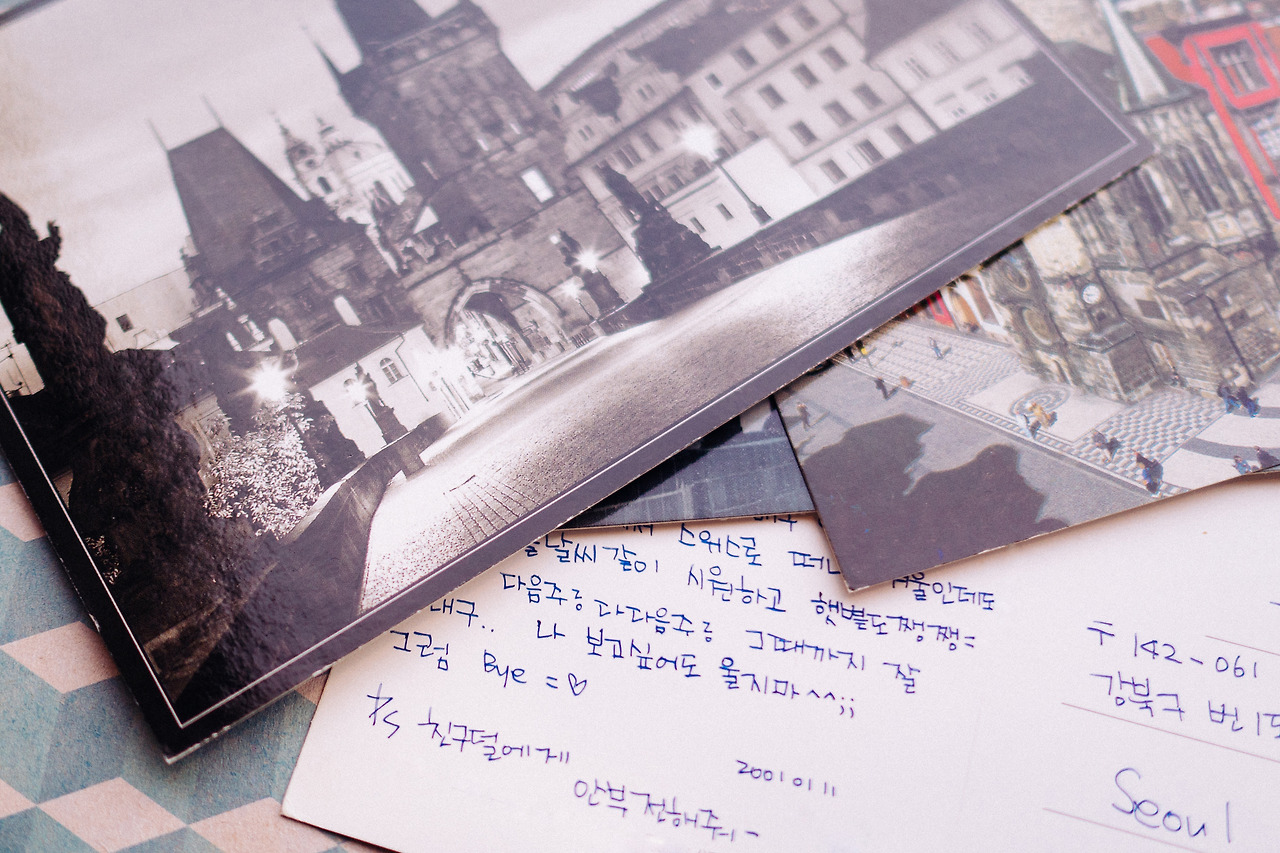 스위스로
날씨같이 시원하고 햇볕도 쨍쨍=
다음주 다다음주 그때까지 잘
나 보고싶어도 울지마^^;;
그럼 Bye =♡
P.S 친구덜에게
안부 전해주 -
2001 01 11
〒142-061
강북구 번1
Seoul